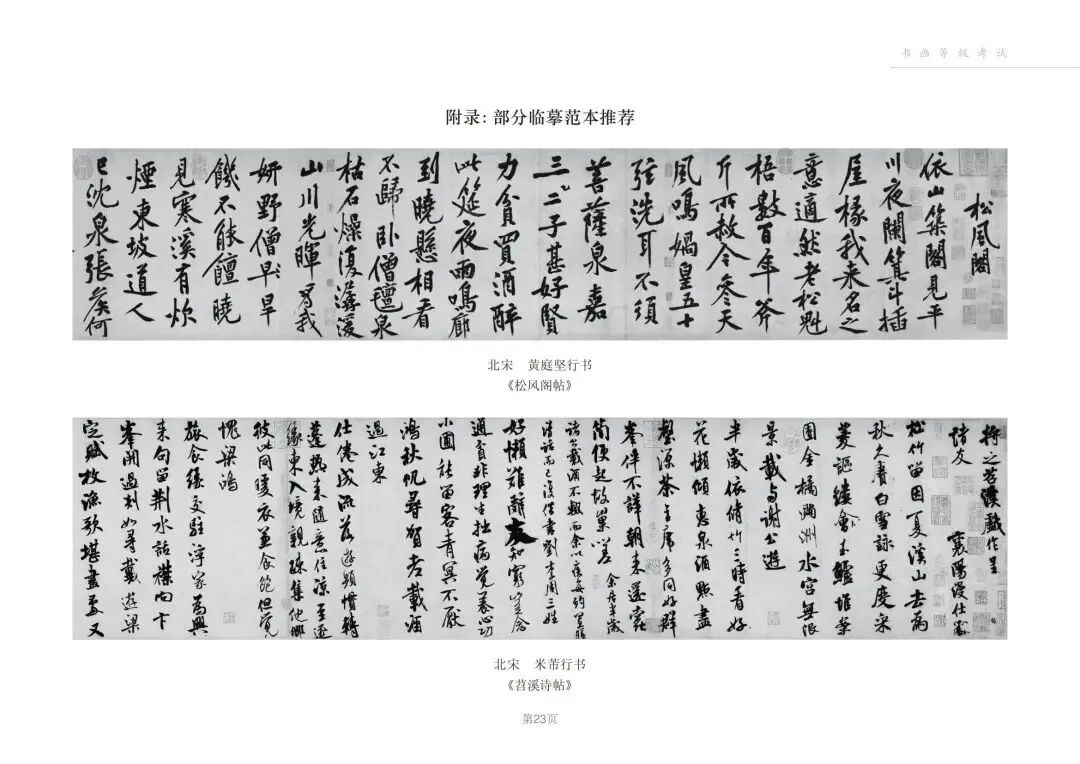 书画等级考试
附录：部分临摹范本推荐
松風閣
依山築閣見平
川夜闌箕斗插
屋椽我来名之
意適然老松魁
梧數百年斧
斤所赦今參天
風鳴媧皇五十
弦洗耳不須
菩薩泉嘉
三二子甚好賢
力貧買酒醉
此筵夜雨鳴廊
到曉懸相看
不歸卧僧氊泉
枯石燥復潺湲
山川光暉為我
妍野僧早旱
饑不能饘曉
見寒溪有炊
煙東坡道人
已沈泉張侯何
北宋　黄庭坚行书
《松风阁帖》
将之苕溪戲作呈
諸友　襄陽漫仕黻
松竹留因夏溪山去為
秋久賡白雪詠更度采
菱謳縷會玉鱸堆案
團金橘滿洲水宫無限
景載与謝公遊
半歲依脩竹三時看好
花懶傾惠泉酒點盡
壑源茶主席多同好群
峯伴不譁朝来還蠹
簡便起故巢嗟　余居半歲
諸公載酒不輟而余以疾每約置膳
清話而已復借書劉李周三姓
好懶難辭友知窮豈念
通貧非理生拙病覺養心功
小圃能留客青冥不厭
鴻秋帆尋賀老載酒
過江東
仕倦成流落遊頻慣轉
蓬熱来隨意住凉至逐
緣東入境親疎集他鄉
彼此同暖衣兼食飽但覺
愧梁鴻
旅食緣交駐浮家為興
来句留荆水話襟向卞
峯開過剡如尋戴遊梁
定賦枚漁歌堪畫處又
北宋　米芾行书
《苕溪诗帖》
第23页